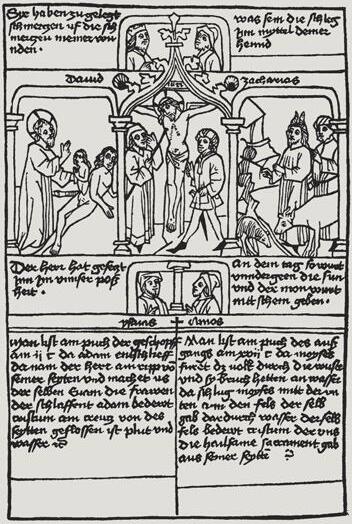 Sye haben zu gelegt
schmerczen uf die sch
merczen meiner wun
nden .
was sein die schleg
Jm mittel deiner
hennd
David
zacharias
Der herr hat gesegt
Jm Jm unser poß
heit .
An dem tag so wirt
unndergeen die sun
und der mon wirt
nit schein geben .
ysaias
Amos
Man list am puch der geschopff
am ii c da adam entschlieff
da nam der herr ain ripp von
seiner seyten und machet us
der selben Evam die frawen
der schlaffent adam bedewt
cristum am creucz von des
seytten geflossen ist plut und
wasser
Man list am puch des aus
gangs am xvii c da moyses
furet dz volck durch die wuste
und sy bruch hetten an wasser
da schlug moyses mit der ru
ten an den fels der selb
gab dardurch wasser der selb
fels bedewt cristum der uns
die hailsame sacrament gab
aus seiner seyten